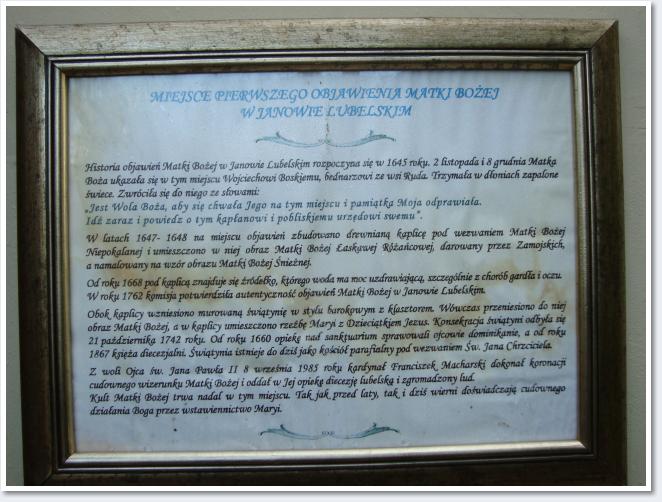 MIEJSCE PIERWSZEGO OBJAWIENIA MATKI BOŻEJ
W JANOWIE LUBELSKIM
Historia objawień Matki Bożej w Janowie Lubelskim rozpoczyna się w 1645 roku. 2 listopada i 8 grudnia Matka
Boża ukazała się w tym miejscu Wojciechowi Boskiemu, bednarzowi ze wsi Ruda. Trzymała w dłoniach zapalone
świece. Zwróciła się do niego ze słowami:
„Jest Wola Boża, aby się chwała Jego na tym miejscu i pamiątka Moja odprawiała.
Idź zaraz i powiedz o tym kapłanowi i pobliskiemu urzędowi swemu".
W latach 1647- 1648 na miejscu objawień zbudowano drewnianą kaplicę pod wezwaniem Matki Bożej
Niepokalanej i umieszczono w niej obraz Matki Bożej Łaskawej Różańcowej, darowany przez Zamojskich,
a namalowany na wzór obrazu Matki Bożej Śnieżnej.
Od roku 1668 pod kaplicą znajduje się źródełko, którego woda ma moc uzdrawiającą, szczególnie z chorób gardła i oczu.
W roku 1762 komisja potwierdziła autentyczność objawień Matki Bożej w Janowie Lubelskim.
Obok kaplicy wzniesiono murowaną świątynię w stylu barokowym z klasztorem. Wówczas przeniesiono do niej
obraz Matki Bożej, a w kaplicy umieszczono rzeźbę Maryi z Dzieciątkiem Jezus. Konsekracja świątyni odbyła się
21 października 1742 roku. Od roku 1660 opiekę nad sanktuarium sprawowali ojcowie dominikanie, a od roku
1867 księża diecezjalni. Świątynia istnieje do dziś jako kościół parafialny pod wezwaniem Św. Jana Chrzciciela.
Z woli Ojca św. Jana Pawła II 8 września 1985 roku kardynał Franciszek Macharski dokonał koronacji
cudownego wizerunku Matki Bożej i oddał w Jej opiekę diecezję lubelską i zgromadzony lud.
Kult Matki Bożej trwa nadal w tym miejscu. Tak jak przed laty, tak i dziś wierni doświadczają cudownego
działania Boga przez wstawiennictwo Maryi.